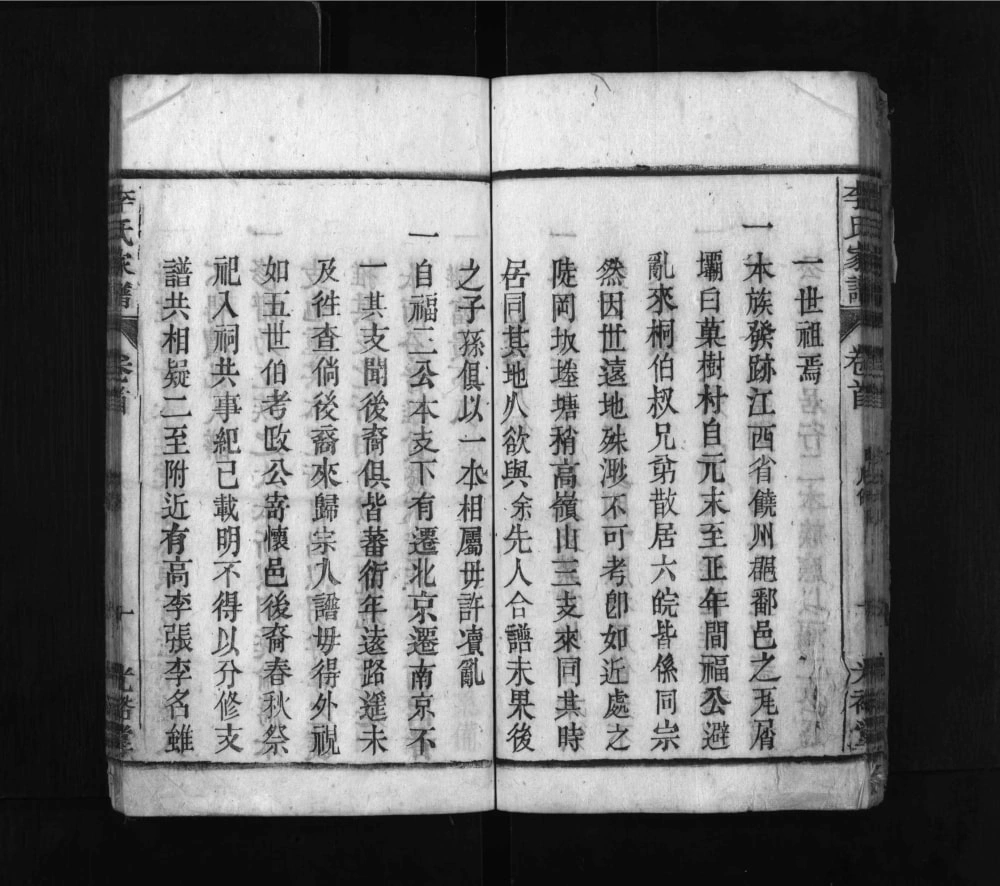 李氏家譜
卷首
一世祖焉
一本族發跡江西省饒州郡鄱邑之瓦屑
壩曰菓樹村自元末至正年間福公避
亂來桐伯叔兄弟散居六皖皆係同宗
然因世遠地殊渺不可考卽如近處之
陡岡坂塰塘稍高嶺山三支來同其時
居同其地久欲與余先人合譜未果後
之子孫俱以一本相屬毋許凟亂
一自福二公本支下有遷北京遷南京不
一其支聞後裔俱皆蕃衍年逺路遥未
及徃查倘後裔來歸宗入譜毋得外視
如五世伯考政公寄懷邑後裔春秋祭
祀入祠共事紀已載明不得以分修支
譜共相疑二至附近有高李張李名雖
李氏家譜
卷首
十
光裕堂